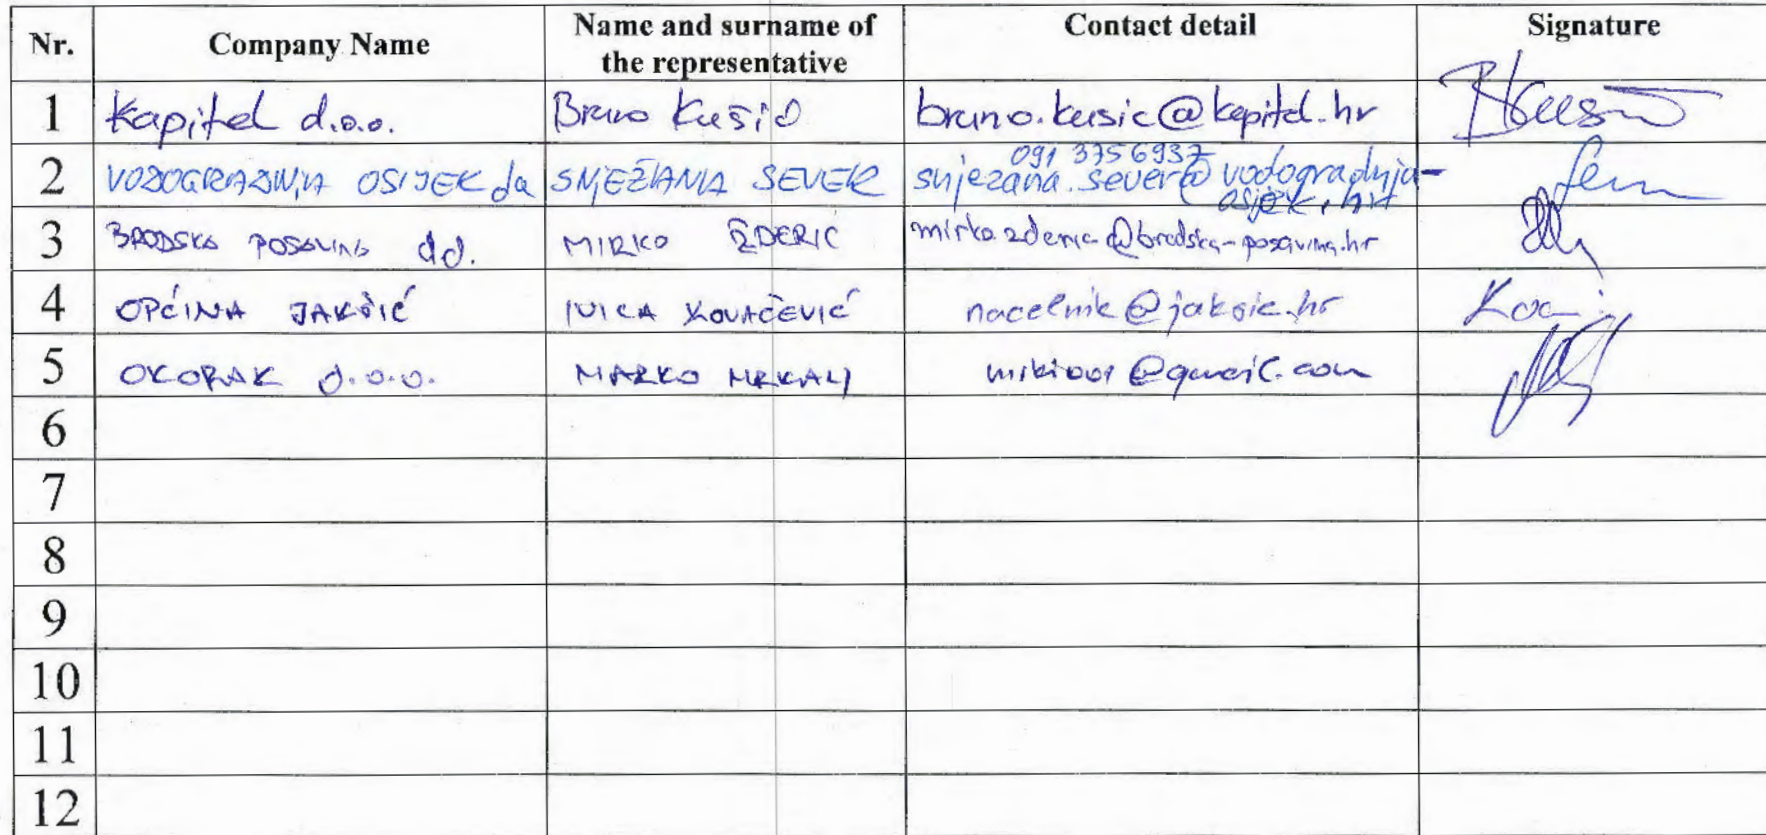 Nr. Company Name Name and surname of the representative Contact detail Signature
1 Kapitel d.o.o. Bruno Kušić bruno.kusic@kapitel.hr
2 VODOGRADNJA OSIJEK SNJEŽANA SEVER 091 3756937 snjezana.sever@vodogradnja-osijek.hr
3 BRODSKA POSAVINA d.d. MIRKO ŽDERIĆ mirko.zderic@brodska-posavina.hr
4 OPĆINA JAKŠIĆ IVICA KOVAČEVIĆ nacelnik@jaksic.hr
5 OKORAK d.o.o. MARKO MRKALJ @gmail.com
6
7
8
9
10
11
12